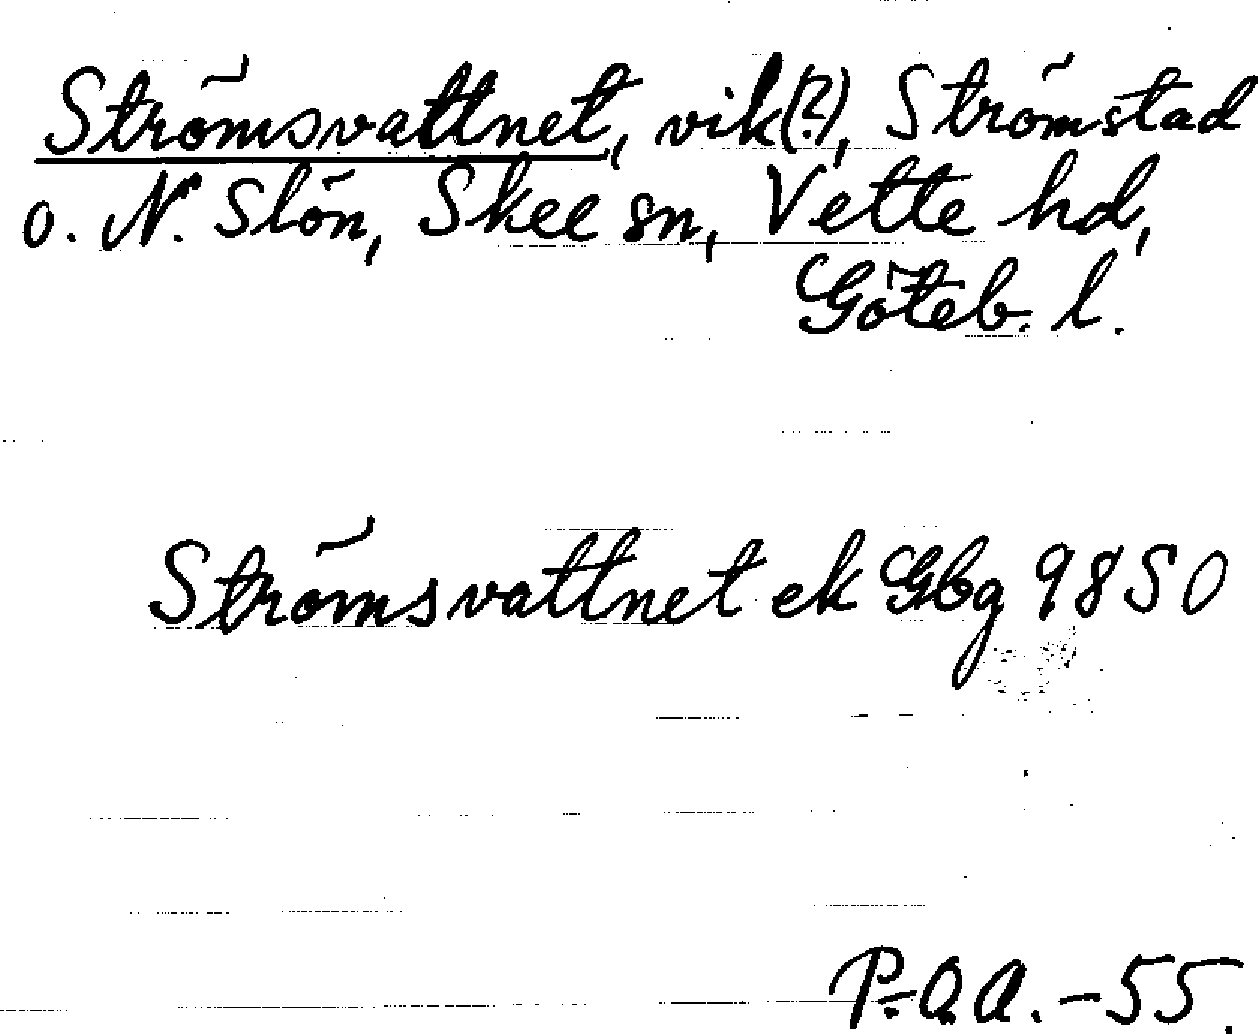 Strömsvattnet, vik(?), Strömstad
o. N. Slön, Skee sn, Vette hd,
Göteb. l.
Strömsvattnet ek Gbg 9850
P.O.A. -55.